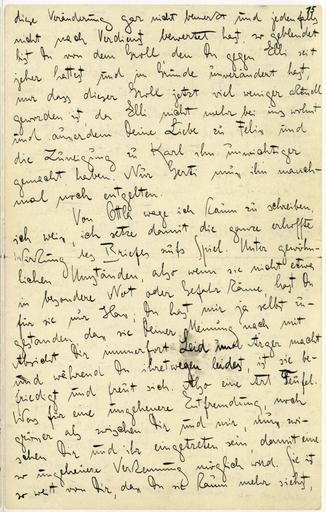 75
diese Veränderung gar nicht bemerkt und jedenfalls
nicht nach Verdienst bewertet hast, so geblendet
bist Du von dem Groll den Du gegen Elli seit
jeher hattest und im Grunde unverändert hast,
nur dass dieser Groll jetzt viel weniger aktuell
geworden ist, da Elli nicht mehr bei uns wohnt
und ausserdem Deine Liebe zu Felix und
die Zuneigung zu Karl ihn unwichtiger
gemacht haben. Nur Gerti muss ihn manch-
mal noch entgelten.
Von Ottla wage ich kaum zu schreiben,
ich weiss, ich setze damit die ganze erhoffte
Wirkung des Briefes aufs Spiel. Unter gewöhn-
lichen Umständen, also wenn sie nicht etwa
in besondere Not oder Gefahr käme, hast Du
für sie nur Hass; Du hast mir ja selbst zu-
gestanden, dass sie Deiner Meinung nach mit
Absicht Dir immerfort Leid und Ärger macht
und während Du ihretwegen leidest, ist sie be-
friedigt und freut sich. Also eine Art Teufel.
Was für eine ungeheuere Entfremdung, noch
grösser als zwischen Dir und mir, muss zwi-
schen Dir und ihr eingetreten sein, damit eine
so ungeheuere Verkennung möglich wird. Sie ist
so weit von Dir, dass Du sie kaum mehr siehst,